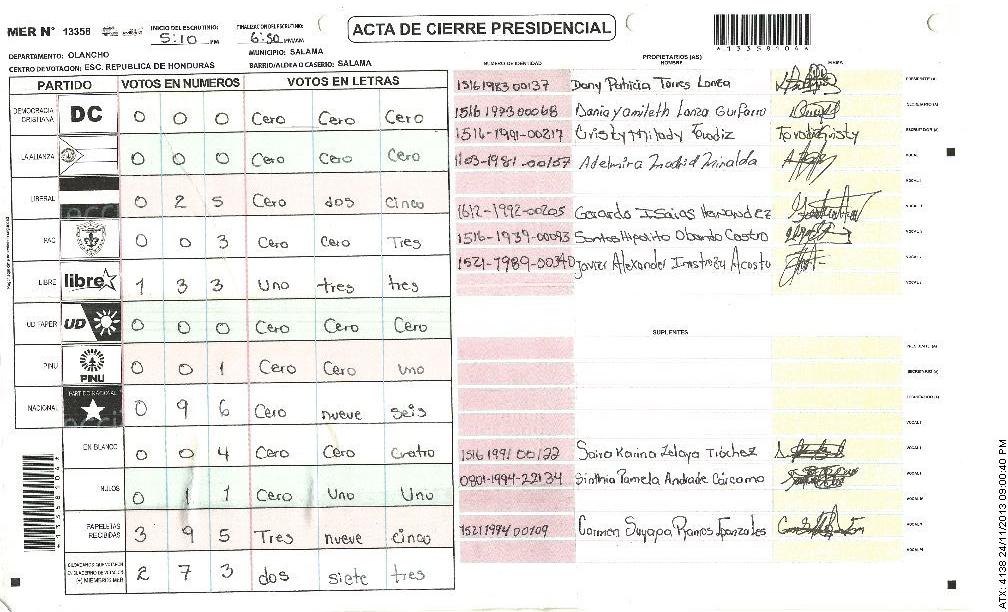 MER N° 13358
INICIO DEL ESCRUTINIO: 5:10 PM
FINALIZACION DEL ESCRUTINIO: 6:50 PM/AM
ACTA DE CIERRE PRESIDENCIAL
DEPARTAMENTO: OLANCHO
MUNICIPIO: SALAMA
CENTRO DE VOTACION: ESC. REPUBLICA DE HONDURAS
BARRIO/ALDEA O CASERIO: SALAMA
PARTIDO VOTOS EN NUMEROS VOTOS EN LETRAS
DEMOCRACIA CRISTIANA DC 0 0 0 Cero Cero Cero
LA ALIANZA 0 0 0 Cero Cero Cero
LIBERAL 0 2 5 Cero dos Cinco
PAC 0 0 3 Cero Cero Tres
LIBRE libre 1 3 3 Uno tres tres
UD FAPER UD 0 0 0 Cero Cero Cero
PINU PINU 0 0 1 Cero Cero uno
NACIONAL PARTIDO NACIONAL 0 9 6 Cero nueve seis
EN BLANCO 0 0 4 Cero Cero Cuatro
NULOS 0 1 1 Cero Uno Uno
PAPELETAS RECIBIDAS 3 9 5 Tres nueve cinco
CIUDADANOS QUE VOTARON EN CUADERNO DE VOTACION (+) MIEMBROS MER 2 7 3 dos siete tres
PROPIETARIOS (AS)
NUMERO DE IDENTIDAD NOMBRE FIRMA
1516 1983 00137 Dany Patricia Torres Lanza PRESIDENTE (A)
1516 1993 00068 Dania Yamileth Lanza Guifarro SECRETARIO (A)
1516-1991-00217 Cristy Milady ESCRUTADOR (A)
1103-1981-00107 Adelmira Madrid VOCAL I
1612-1992-00205 Gerardo Isaias Hernandez
1516-1939-00093 Santos Hipolito Obando Castro
1521-1989-00340 Javier Alexander Acosta
SUPLENTES
PRESIDENTE (A)
SECRETARIO (A)
ESCRUTADOR (A)
VOCAL I
1516 1991 00122 Karina Zelaya
0801-1994-22134 Sinthia Pamela Andrade Cárcamo
1521 1994 00109 Carmen Suyapa Ramos Gonzales
A13358104A
ATX: 4138 24/11/2013 09:00:40 PM